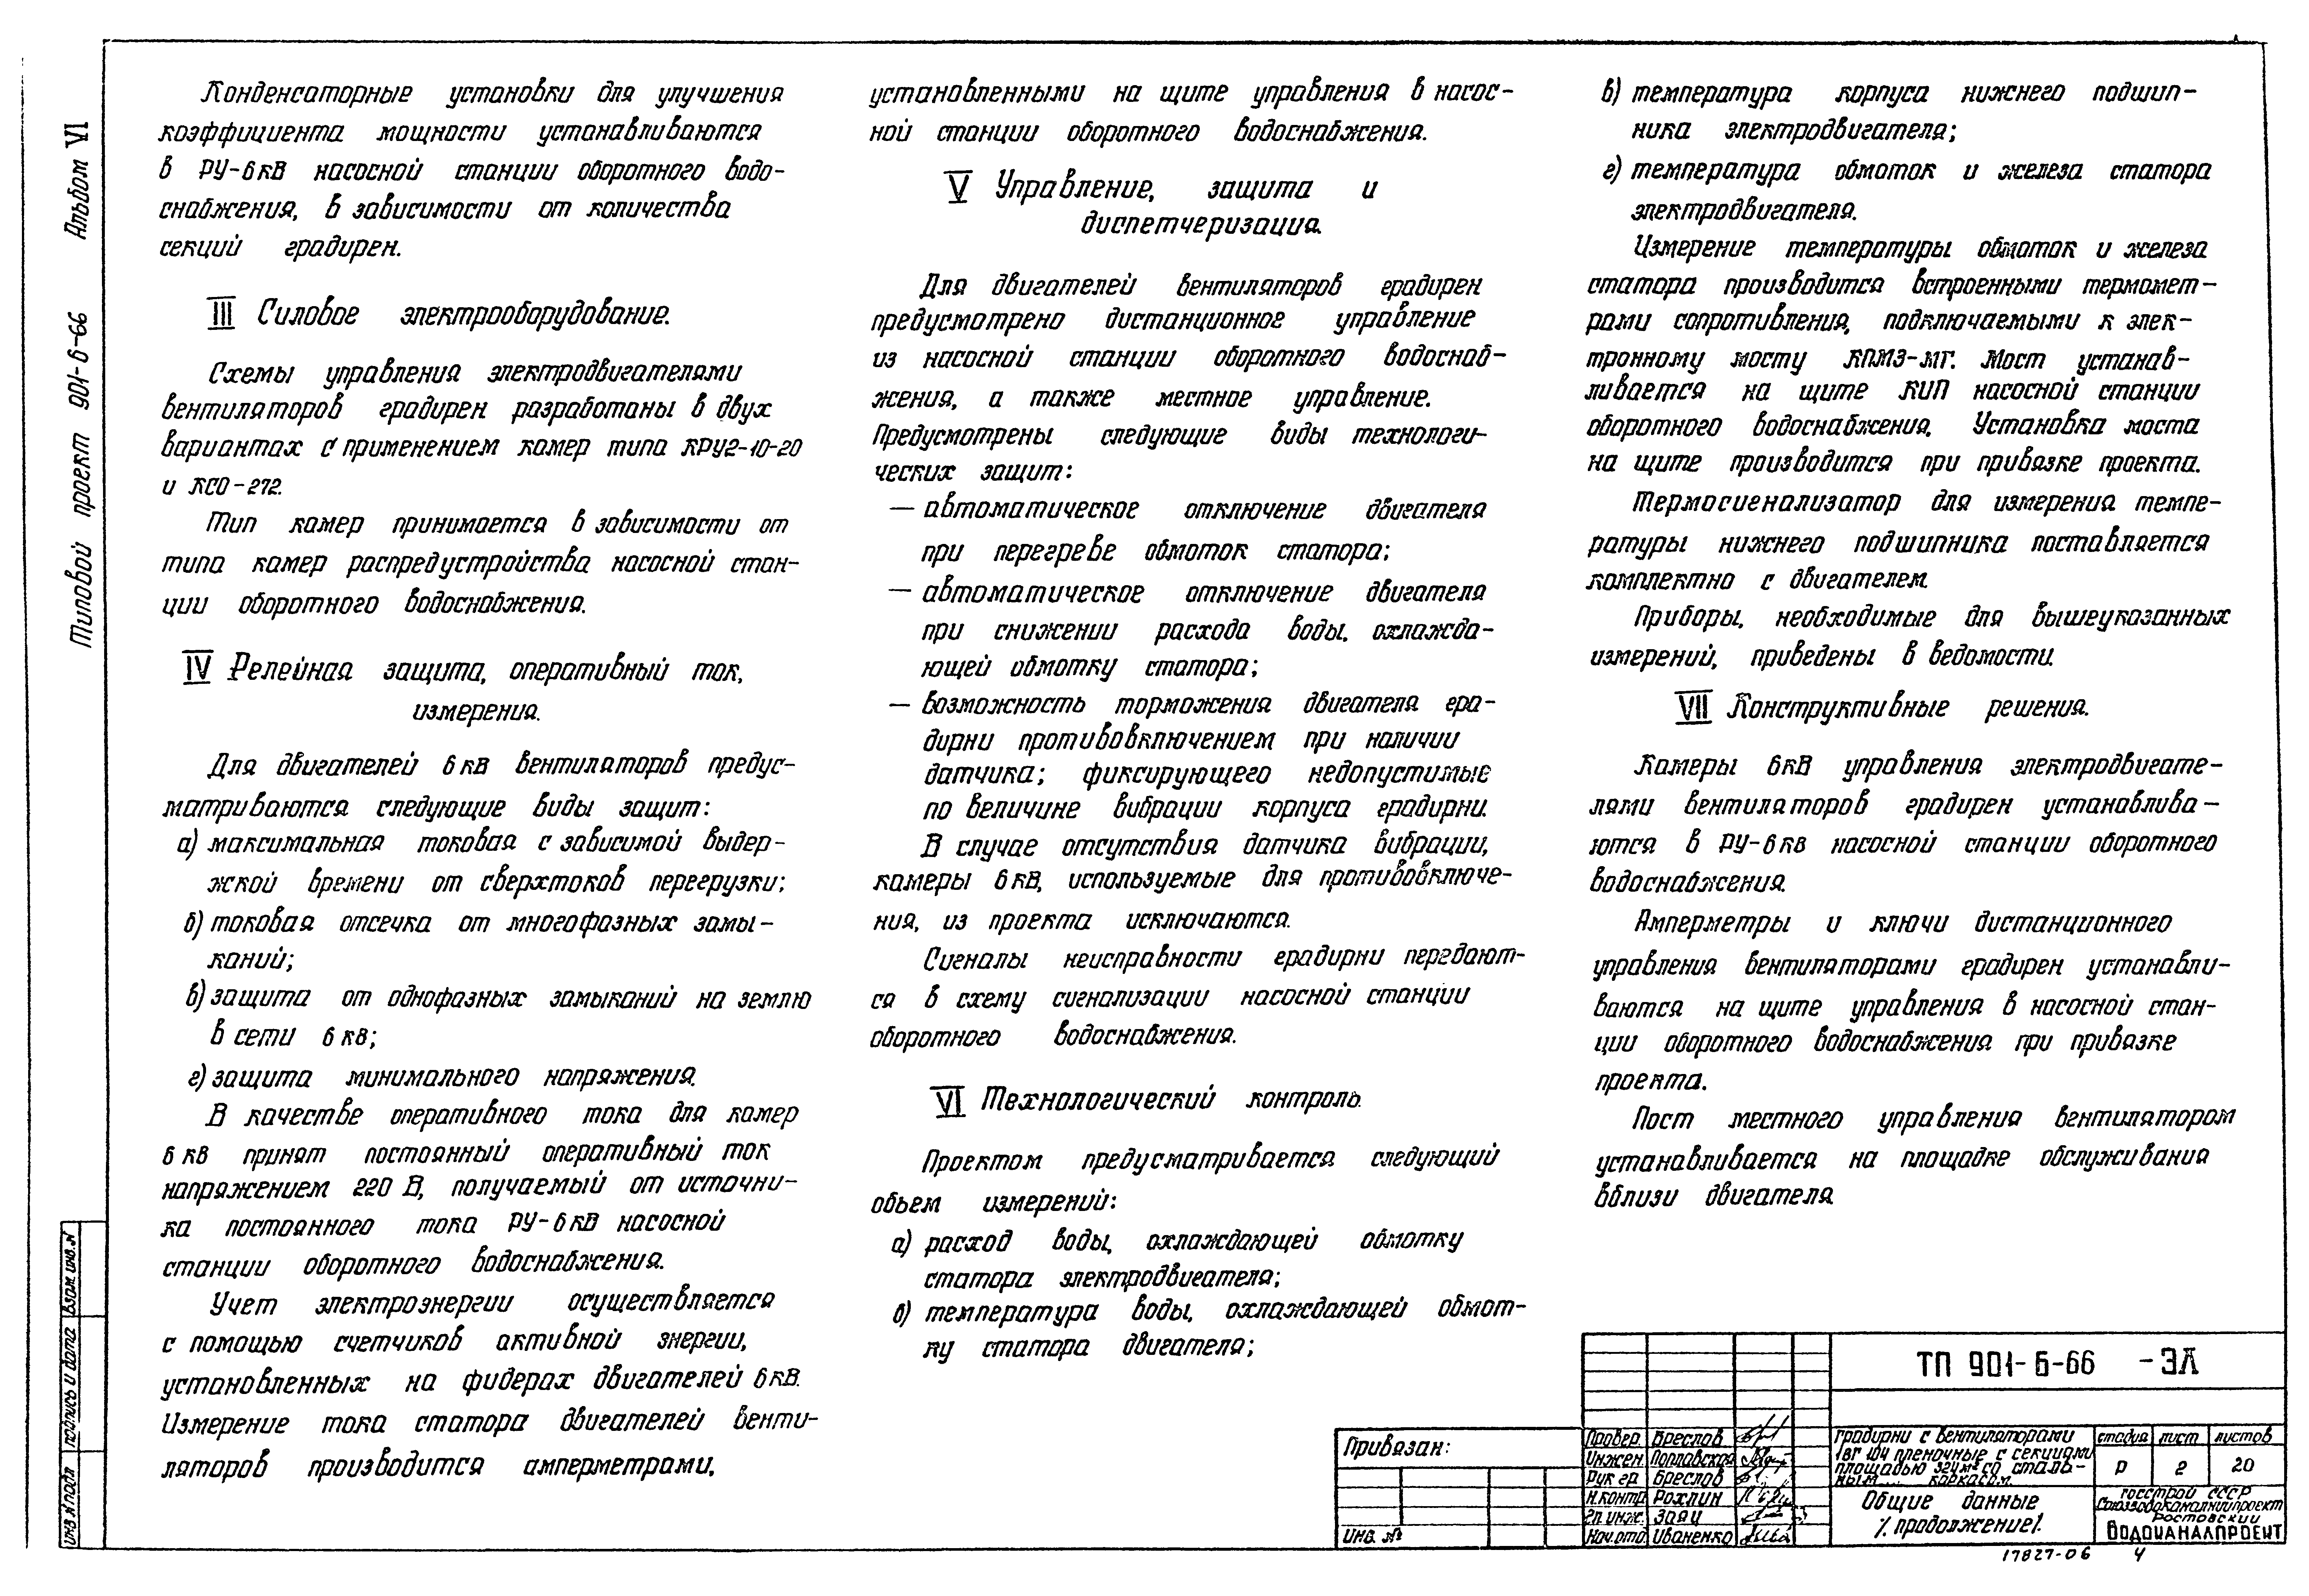 Альбом VI
Типовой проект 901-6-66
Конденсаторные установки для улучшения
коэффициента мощности устанавливаются
в РУ-6кВ насосной станции оборотного водо-
снабжения, в зависимости от количества
секций градирен.
III Силовое электрооборудование.
Схемы управления электродвигателями
вентиляторов градирен разработаны в двух
вариантах с применением камер типа КРУ2-10-20
и КСО-272.
Тип камер принимается в зависимости от
типа камер распредустройства насосной стан-
ции оборотного водоснабжения.
IV Релейная защита, оперативный ток,
измерения.
Для двигателей 6кВ вентиляторов предус-
матриваются следующие виды защит:
а) максимальная токовая с зависимой выдер-
жкой времени от сверхтоков перегрузки;
б) токовая отсечка от многофазных замы-
каний;
в) защита от однофазных замыканий на землю
в сети 6кВ;
г) защита минимального напряжения.
В качестве оперативного тока для камер
6кВ принят постоянный оперативный ток
напряжением 220 В, получаемый от источни-
ка постоянного тока РУ-6кВ насосной
станции оборотного водоснабжения.
Учет электроэнергии осуществляется
с помощью счетчиков активной энергии,
установленных на фидерах двигателей 6кВ.
Измерение тока статора двигателей венти-
ляторов производится амперметрами,
установленными на щите управления в насос-
ной станции оборотного водоснабжения.
V Управление, защита и
диспетчеризация.
Для двигателей вентиляторов градирен
предусмотрено дистанционное управление
из насосной станции оборотного водоснаб-
жения, а также местное управление.
Предусмотрены следующие виды технологи-
ческих защит:
— автоматическое отключение двигателя
при перегреве обмоток статора;
— автоматическое отключение двигателя
при снижении расхода воды, охлажда-
ющей обмотку статора;
— возможность торможения двигателя гра-
дирни противовключением при наличии
датчика; фиксирующего недопустимые
по величине вибрации корпуса градирни.
В случае отсутствия датчика вибрации,
камеры 6кВ, используемые для противовключе-
ния, из проекта исключаются.
Сигналы неисправности градирни передают-
ся в схему сигнализации насосной станции
оборотного водоснабжения.
VI Технологический контроль.
Проектом предусматривается следующий
объем измерений:
а) расход воды, охлаждающей обмотку
статора электродвигателя;
б) температура воды, охлаждающей обмот-
ку статора двигателя;
в) температура корпуса нижнего подшип-
ника электродвигателя;
г) температура обмоток и железа статора
электродвигателя.
Измерение температуры обмоток и железа
статора производится встроенными термомет-
рами сопротивления, подключаемыми к элек-
тронному мосту КПМЗ-МГ. Мост устанав-
ливается на щите КИП насосной станции
оборотного водоснабжения. Установка моста
на щите производится при привязке проекта.
Термосигнализатор для измерения темпе-
ратуры нижнего подшипника поставляется
комплектно с двигателем.
Приборы, необходимые для вышеуказанных
измерений, приведены в ведомости.
VII Конструктивные решения.
Камеры 6кВ управления электродвигате-
лями вентиляторов градирен устанавлива-
ются в РУ-6кв насосной станции оборотного
водоснабжения.
Амперметры и ключи дистанционного
управления вентиляторами градирен устанавли-
ваются на щите управления в насосной стан-
ции оборотного водоснабжения при привязке
проекта.
Пост местного управления вентилятором
устанавливается на площадке обслуживания
вблизи двигателя.
Инв.N подл Подпись и дата Взам. инв. N
Привязан:
Инв. №
Провер. Бреслов
Инжен. Поплавская
Рук.гр. Бреслов
Н.контр. Рохлин
Гл.инж. Заяц
Нач.отд. Иваненко
ТП 901-6-66 -ЭЛ
Градирни с вентиляторами
1ВГ 104 пленочные с секциями
площадью 324м² со сталь-
ным каркасом.
стадия лист листов
Р 2 20
Общие данные
/продолжение/.
Госстрой СССР
Союзводоканалниипроект
Ростовский
ВОДОКАНАЛПРОЕКТ
17827-06 4